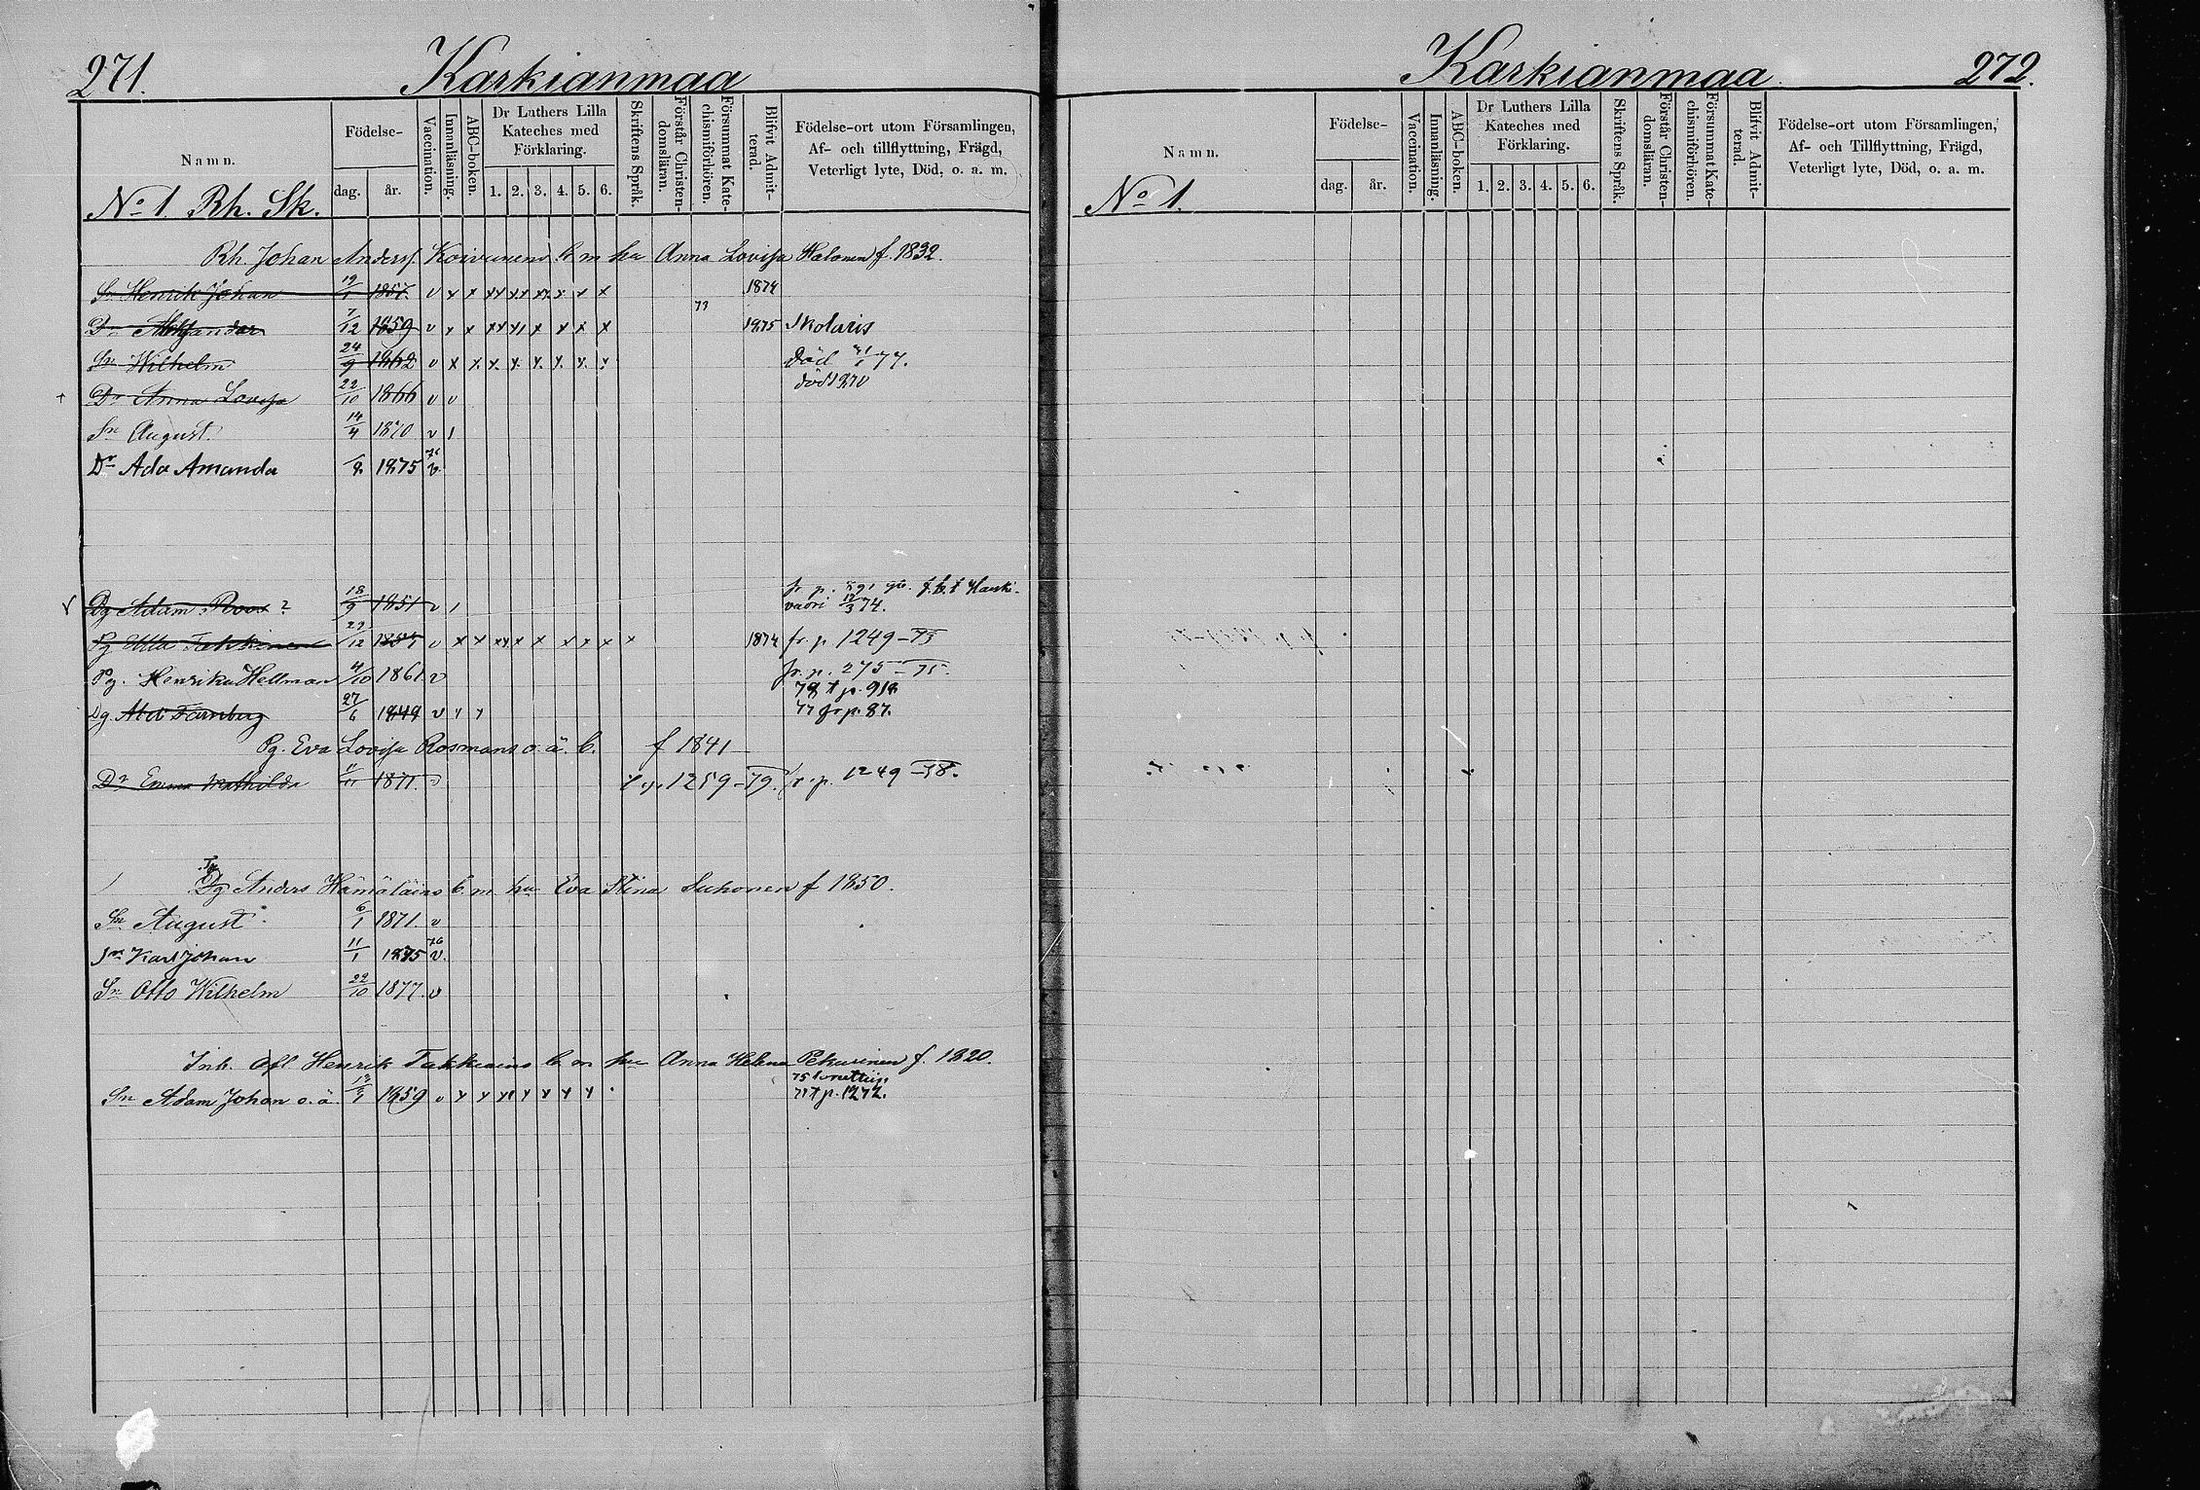 271.
Karkianmaa
Namn.
Födelse-
dag.
år.
Vaccination.
Innanläsning.
ABC-boken.
Dr Luthers Lilla
Kateches med
Förklaring.
1. 2. 3. 4. 5. 6.
Skriftens Språk.
Förstår Christen-
domsläran.
Försummat Kate-
chismiförhören.
Blifvit Admit-
terad.
Födelse-ort utom Församlingen,
Af- och tillflyttning, Frägd,
Veterligt lyte, Död, o. a. m.
No 1 Rh. Sk.
Rh. Johan Anderss. Koivunens b m hu Anna Lovisa Halonen f. 1832.
Sn Henrik Johan 19/1 1857. v x x xx xx xx x x x 1874
73
7/12 1859 v x x x x x x 1875 Skolaris
Sn Wilhelm 24/9 1862 v x x x x x x x död 77.
Dr Anna Lovisa 22/10 1866 v v död
Sn August. 14/4 1870 v 1
Dr Ada Amanda /8 1875 v.
Dg Adam ? 18/9 1851 v 1 fr p. Hauki-
vuori 12/3 74.
Pg Ulla Takkinen /12 v x x xx x x x x x x 1874 fr. p. 1249-73
Pg. Henrika Hellman 4/10 1861. v fr. p. 275-75.
78 t p. 918
Dg. 27/6 1849 v fr p. 87.
Pg. Eva Lovisa Rosmans o. ä. b. f 1841
Dr Emma Mathilda /11 1871. v t. p. 1259-79. fr. p. 1249-78.
Dg Anders Hämäläins b. m. hu Eva Stina Suhonen f 1850.
Sn August. 6/1 1871. v
Sn Karl Johan 11/1 1875 v. 76
Sn Otto Wilhelm 22/10 1877. v
Inh. Afl Henrik Takkinens b m hu Anna Helena Pekurinen f. 1820.
Sn Adam Johan o. ä. 1859 v x x x x x x x t p. 1272.
Karkianmaa
272.
Namn.
Födelse-
dag.
år.
Vaccination.
Innanläsning.
ABC-boken.
Dr Luthers Lilla
Kateches med
Förklaring.
1. 2. 3. 4. 5. 6.
Skriftens Språk.
Förstår Christen-
domsläran.
Försummat Kate-
chismiförhören.
Blifvit Admit-
terad.
Födelse-ort utom Församlingen,
Af- och Tillflyttning, Frägd,
Veterligt lyte, Död, o. a. m.
No 1.